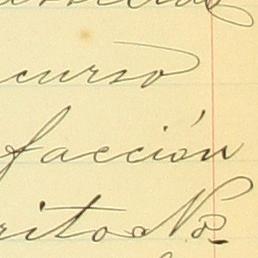 curso
facción
rito No